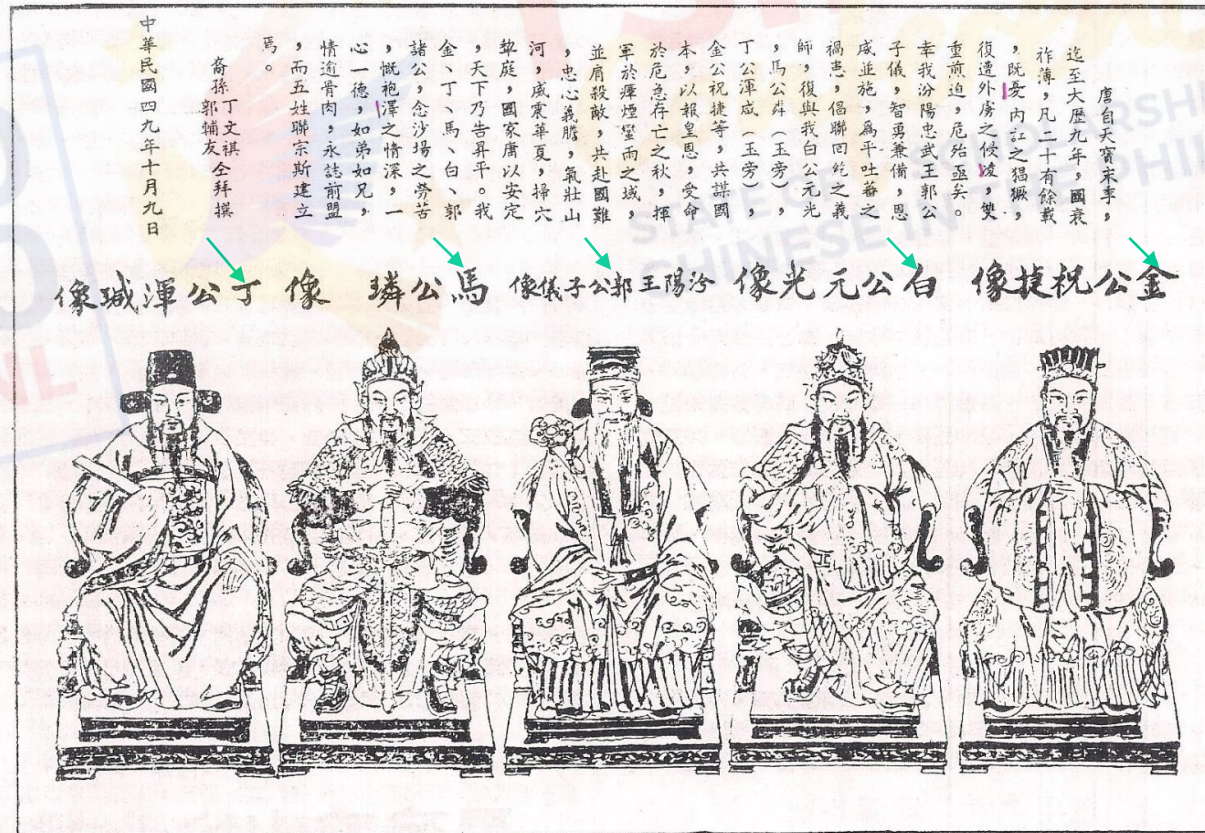 唐自天寶末季，
迄至大歷九年，國衰
祚薄，凡二十有餘載
，既受內訌之猖獗，
復遭外虜之侵凌，雙
重煎迫，危殆亟矣。
幸我汾陽忠武王郭公
子儀，智勇兼備，恩
威並施，為平吐蕃之
禍患，倡聯回紇之義
師，復與我白公元光
，馬公粦（玉旁），
丁公渾咸（玉旁），
金公祝捷等，共謀國
本以報皇恩，受命
於危急存亡之秋，揮
軍於煙雨之域，
並肩殺敵，共赴國難
，忠心義膽，氣壯山
河，威震華夏，掃穴
犂庭，國家庸以安定
，天下乃告昇平。我
金、丁、馬、白、郭
諸公，念沙場之勞苦
，慨袍澤之情深，一
心一德，如弟如兄，
情逾骨肉，永誌前盟
，而五姓聯宗斯建立
焉。
裔孫 丁文祺 郭輔友 仝拜撰
中華民國四九年十月九日
金公祝捷像
白公元光像
汾陽王郭公子儀像
馬公璘像
丁公渾瑊像
STATE OF SCHOLARSHI
CHINESE IN THE PHIL